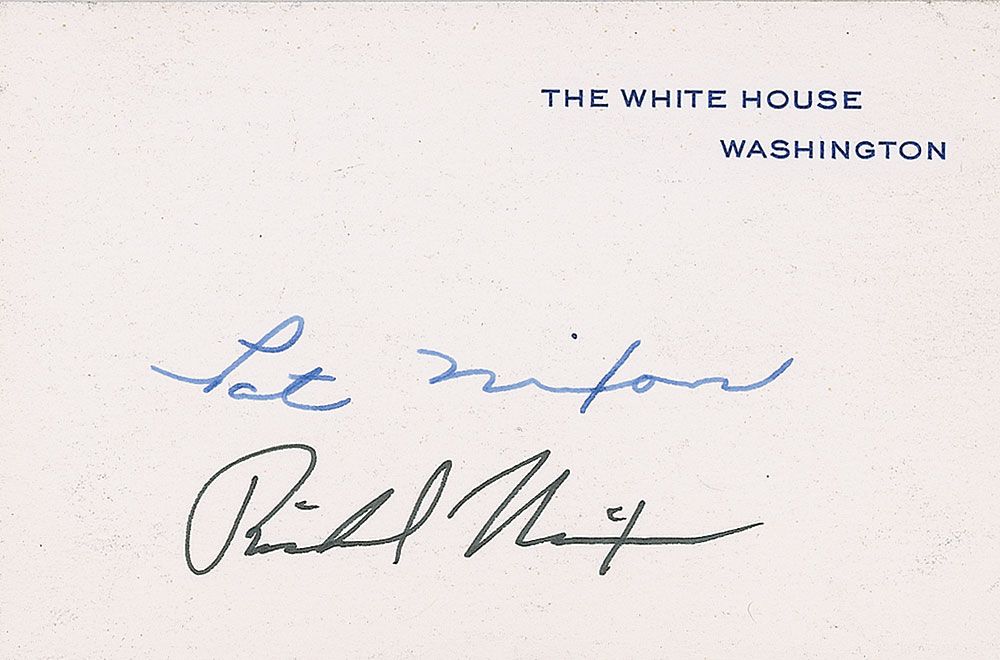 THE WHITE HOUSE
WASHINGTON
Pat Nixon
Richard Nixon